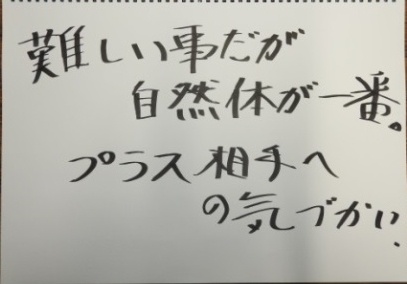 難しい事だが
自然体が一番。
プラス相手へ
の気づかい.